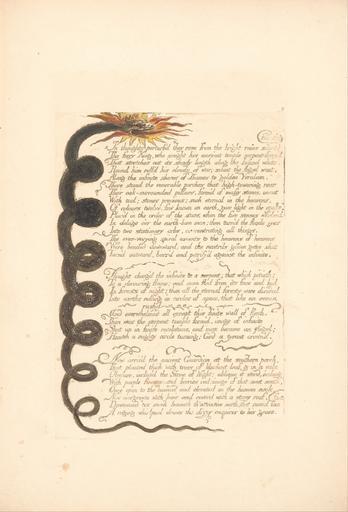 In thoughts perturb'd, they rose from the bright ruins silent following
The fiery King, who sought his ancient temple serpent-form'd
That stretches out its shady length along the Island white.
Round him roll'd his clouds of war; silent the Angel went,
Along the infinite shores of Thames to golden Verulam.
There stand the venerable porches that high-towering rear
Their oak-surrounded pillars, form'd of massy stones, uncut
With tool; stones precious; such eternal in the heavens,
Of colours twelve, few known on earth, give light in the opake,
Plac'd in the order of the stars, when the five senses whelm'd
In deluge o'er the earth-born man; then turn'd the fluxile eyes
Into two stationary orbs, concentrating all things.
The ever-varying spiral ascents to the heavens of heavens
Were bended downward; and the nostrils golden gates shut
Turn'd outward, barr'd and petrify'd against the infinite.
Thought chang'd the infinite to a serpent; that which pitieth:
To a devouring flame; and man fled from its face and hid
In forests of night; then all the eternal forests were divided
Into earths rolling in circles of space, that like an ocean
rush'd
And overwhelmed all except this finite wall of flesh.
Then was the serpent temple form'd, image of infinite
Shut up in finite revolutions, and man became an Angel;
Heaven a mighty circle turning; God a tyrant crown'd.
Now arriv'd the ancient Guardian at the southern porch,
That planted thick with trees of blackest leaf, & in a vale
Obscure, inclos'd the Stone of Night; oblique it stood, o'erhung
With purple flowers and berries red; image of that sweet south,
Once open to the heavens and elevated on the human neck,
Now overgrown with hair and coverd with a stony roof,
Downward 'tis sunk beneath th' attractive north, that round the feet
A raging whirlpool draws the dizzy enquirer to his grave: